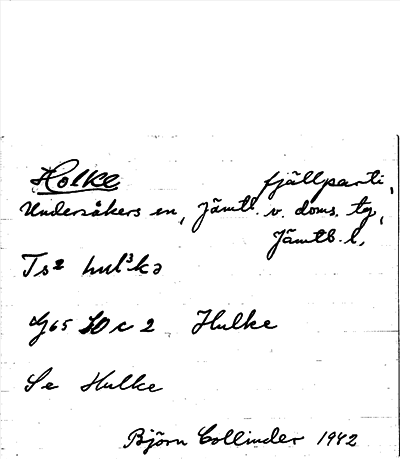 Holke fjällparti,
Undersåkers sn, Jämtl. v. doms. tg,
Jämtl. l.
Ts² hul³kə
G65 SO c 2 Hulke
Se Hulke
Björn Collinder 1942